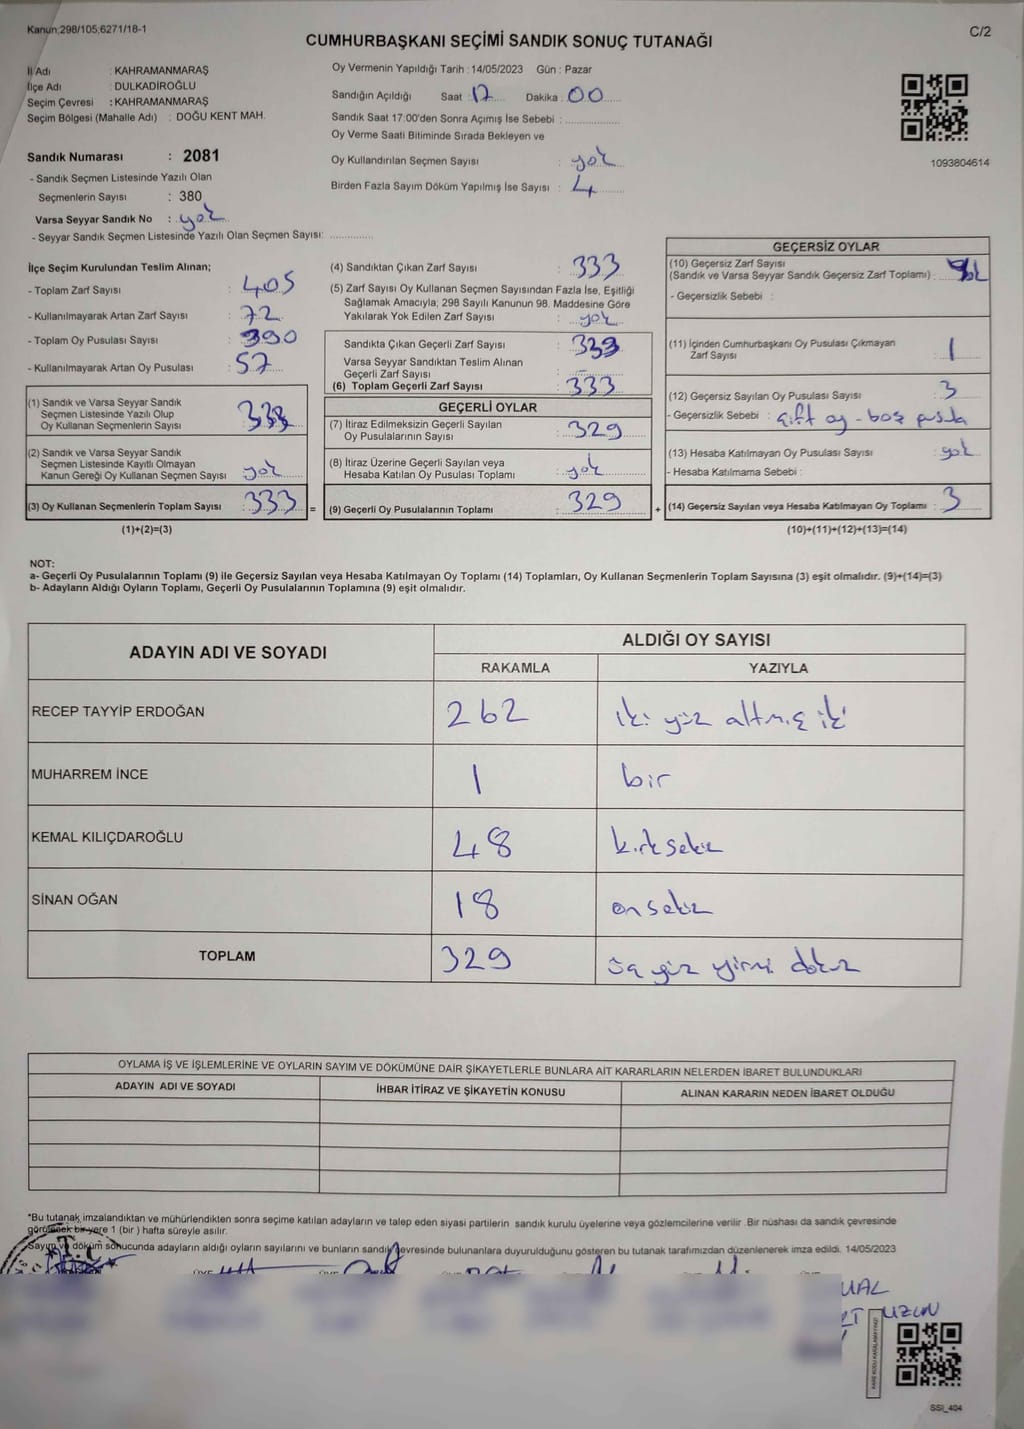 Kanun;298/105;6271/18-1
C/2
CUMHURBAŞKANI SEÇİMİ SANDIK SONUÇ TUTANAĞI
İl Adı : KAHRAMANMARAŞ
İlçe Adı : DULKADİROĞLU
Seçim Çevresi : KAHRAMANMARAŞ
Seçim Bölgesi (Mahalle Adı) : DOĞU KENT MAH.
Sandık Numarası : 2081
- Sandık Seçmen Listesinde Yazılı Olan
Seçmenlerin Sayısı : 380
Varsa Seyyar Sandık No : yok
- Seyyar Sandık Seçmen Listesinde Yazılı Olan Seçmen Sayısı: ..............
Oy Vermenin Yapıldığı Tarih : 14/05/2023 Gün : Pazar
Sandığın Açıldığı Saat 17 Dakika : 00
Sandık Saat 17:00'den Sonra Açımış İse Sebebi : ..............
Oy Verme Saati Bitiminde Sırada Bekleyen ve
Oy Kullandırılan Seçmen Sayısı : yok
Birden Fazla Sayım Döküm Yapılmış İse Sayısı : 4
1093804614
İlçe Seçim Kurulundan Teslim Alınan;
- Toplam Zarf Sayısı : 405
- Kullanılmayarak Artan Zarf Sayısı : 72
- Toplam Oy Pusulası Sayısı : 390
- Kullanılmayarak Artan Oy Pusulası : 57
(1) Sandık ve Varsa Seyyar Sandık
Seçmen Listesinde Yazılı Olup
Oy Kullanan Seçmenlerin Sayısı : 333
(2) Sandık ve Varsa Seyyar Sandık
Seçmen Listesinde Kayıtlı Olmayan
Kanun Gereği Oy Kullanan Seçmen Sayısı : yok
(3) Oy Kullanan Seçmenlerin Toplam Sayısı : 333 =
(1)+(2)=(3)
(4) Sandıktan Çıkan Zarf Sayısı : 333
(5) Zarf Sayısı Oy Kullanan Seçmen Sayısından Fazla İse, Eşitliği
Sağlamak Amacıyla; 298 Sayılı Kanunun 98. Maddesine Göre
Yakılarak Yok Edilen Zarf Sayısı : yok
Sandıkta Çıkan Geçerli Zarf Sayısı : 333
Varsa Seyyar Sandıktan Teslim Alınan
Geçerli Zarf Sayısı
(6) Toplam Geçerli Zarf Sayısı : 333
GEÇERLİ OYLAR
(7) İtiraz Edilmeksizin Geçerli Sayılan
Oy Pusulalarının Sayısı : 329
(8) İtiraz Üzerine Geçerli Sayılan veya
Hesaba Katılan Oy Pusulası Toplamı : yok
(9) Geçerli Oy Pusulalarının Toplamı : 329 +
GEÇERSİZ OYLAR
(10) Geçersiz Zarf Sayısı
(Sandık ve Varsa Seyyar Sandık Geçersiz Zarf Toplamı) : yok
- Geçersizlik Sebebi :
(11) İçinden Cumhurbaşkanı Oy Pusulası Çıkmayan
Zarf Sayısı : 1
(12) Geçersiz Sayılan Oy Pusulası Sayısı : 3
- Geçersizlik Sebebi : çift oy - boş pusula
(13) Hesaba Katılmayan Oy Pusulası Sayısı : yok
- Hesaba Katılmama Sebebi :
(14) Geçersiz Sayılan veya Hesaba Katılmayan Oy Toplamı : 3
(10)+(11)+(12)+(13)=(14)
NOT:
a- Geçerli Oy Pusulalarının Toplamı (9) ile Geçersiz Sayılan veya Hesaba Katılmayan Oy Toplamı (14) Toplamları, Oy Kullanan Seçmenlerin Toplam Sayısına (3) eşit olmalıdır. (9)+(14)=(3)
b- Adayların Aldığı Oyların Toplamı, Geçerli Oy Pusulalarının Toplamına (9) eşit olmalıdır.
ADAYIN ADI VE SOYADI
ALDIĞI OY SAYISI
RAKAMLA YAZIYLA
RECEP TAYYİP ERDOĞAN 262 iki yüz altmış iki
MUHARREM İNCE 1 bir
KEMAL KILIÇDAROĞLU 48 kırk sekiz
SİNAN OĞAN 18 on sekiz
TOPLAM 329 üç yüz yirmi dokuz
OYLAMA İŞ VE İŞLEMLERİNE VE OYLARIN SAYIM VE DÖKÜMÜNE DAİR ŞİKAYETLERLE BUNLARA AİT KARARLARIN NELERDEN İBARET BULUNDUKLARI
ADAYIN ADI VE SOYADI İHBAR İTİRAZ VE ŞİKAYETİN KONUSU ALINAN KARARIN NEDEN İBARET OLDUĞU
*Bu tutanak imzalandıktan ve mühürlendikten sonra seçime katılan adayların ve talep eden siyasi partilerin sandık kurulu üyelerine veya gözlemcilerine verilir. Bir nüshası da sandık çevresinde
görülecek bir yere 1 (bir) hafta süreyle asılır.
Sayım ve döküm sonucunda adayların aldığı oyların sayılarını ve bunların sandık çevresinde bulunanlara duyurulduğunu gösteren bu tutanak tarafımızdan düzenlenerek imza edildi. 14/05/2023
T.C.
UZUN
SSI_404